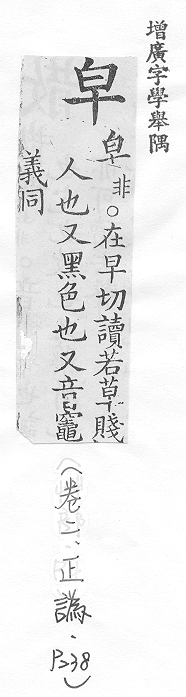 增廣字學舉隅
皁
皂非。在早切讀若草賤
人也又黑色也又音竈
義同
(卷二、正譌．P238)